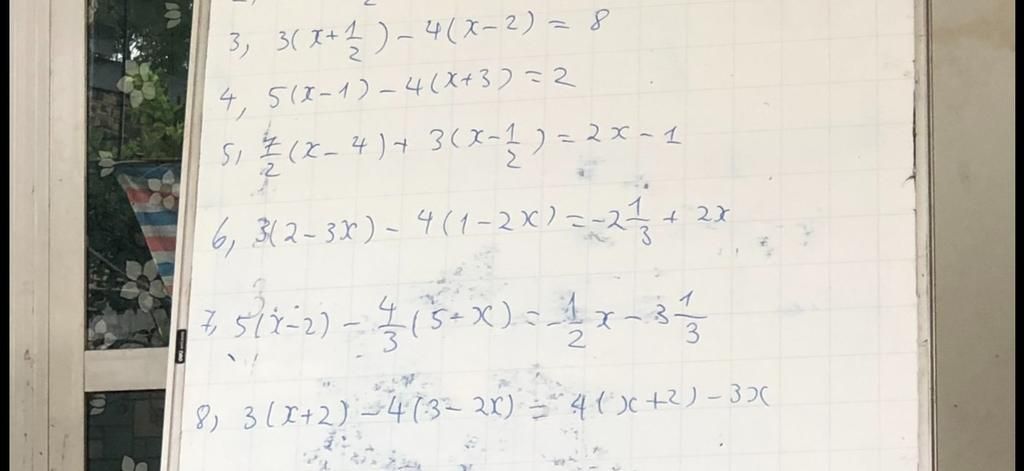 3, 3(x+1/2) - 4(x-2) = 8
4, 5(x-1) - 4(x+3) = 2
5, 7/2(x-4) + 3(x-1/2) = 2x-1
6, 3(2-3x) - 4(1-2x) = -2 1/3 + 2x
7, 5(x-2) - 4/3(5-x) = -1/2x - 3 1/3
8, 3(x+2) - 4(3-2x) = 4(x+2) - 3x